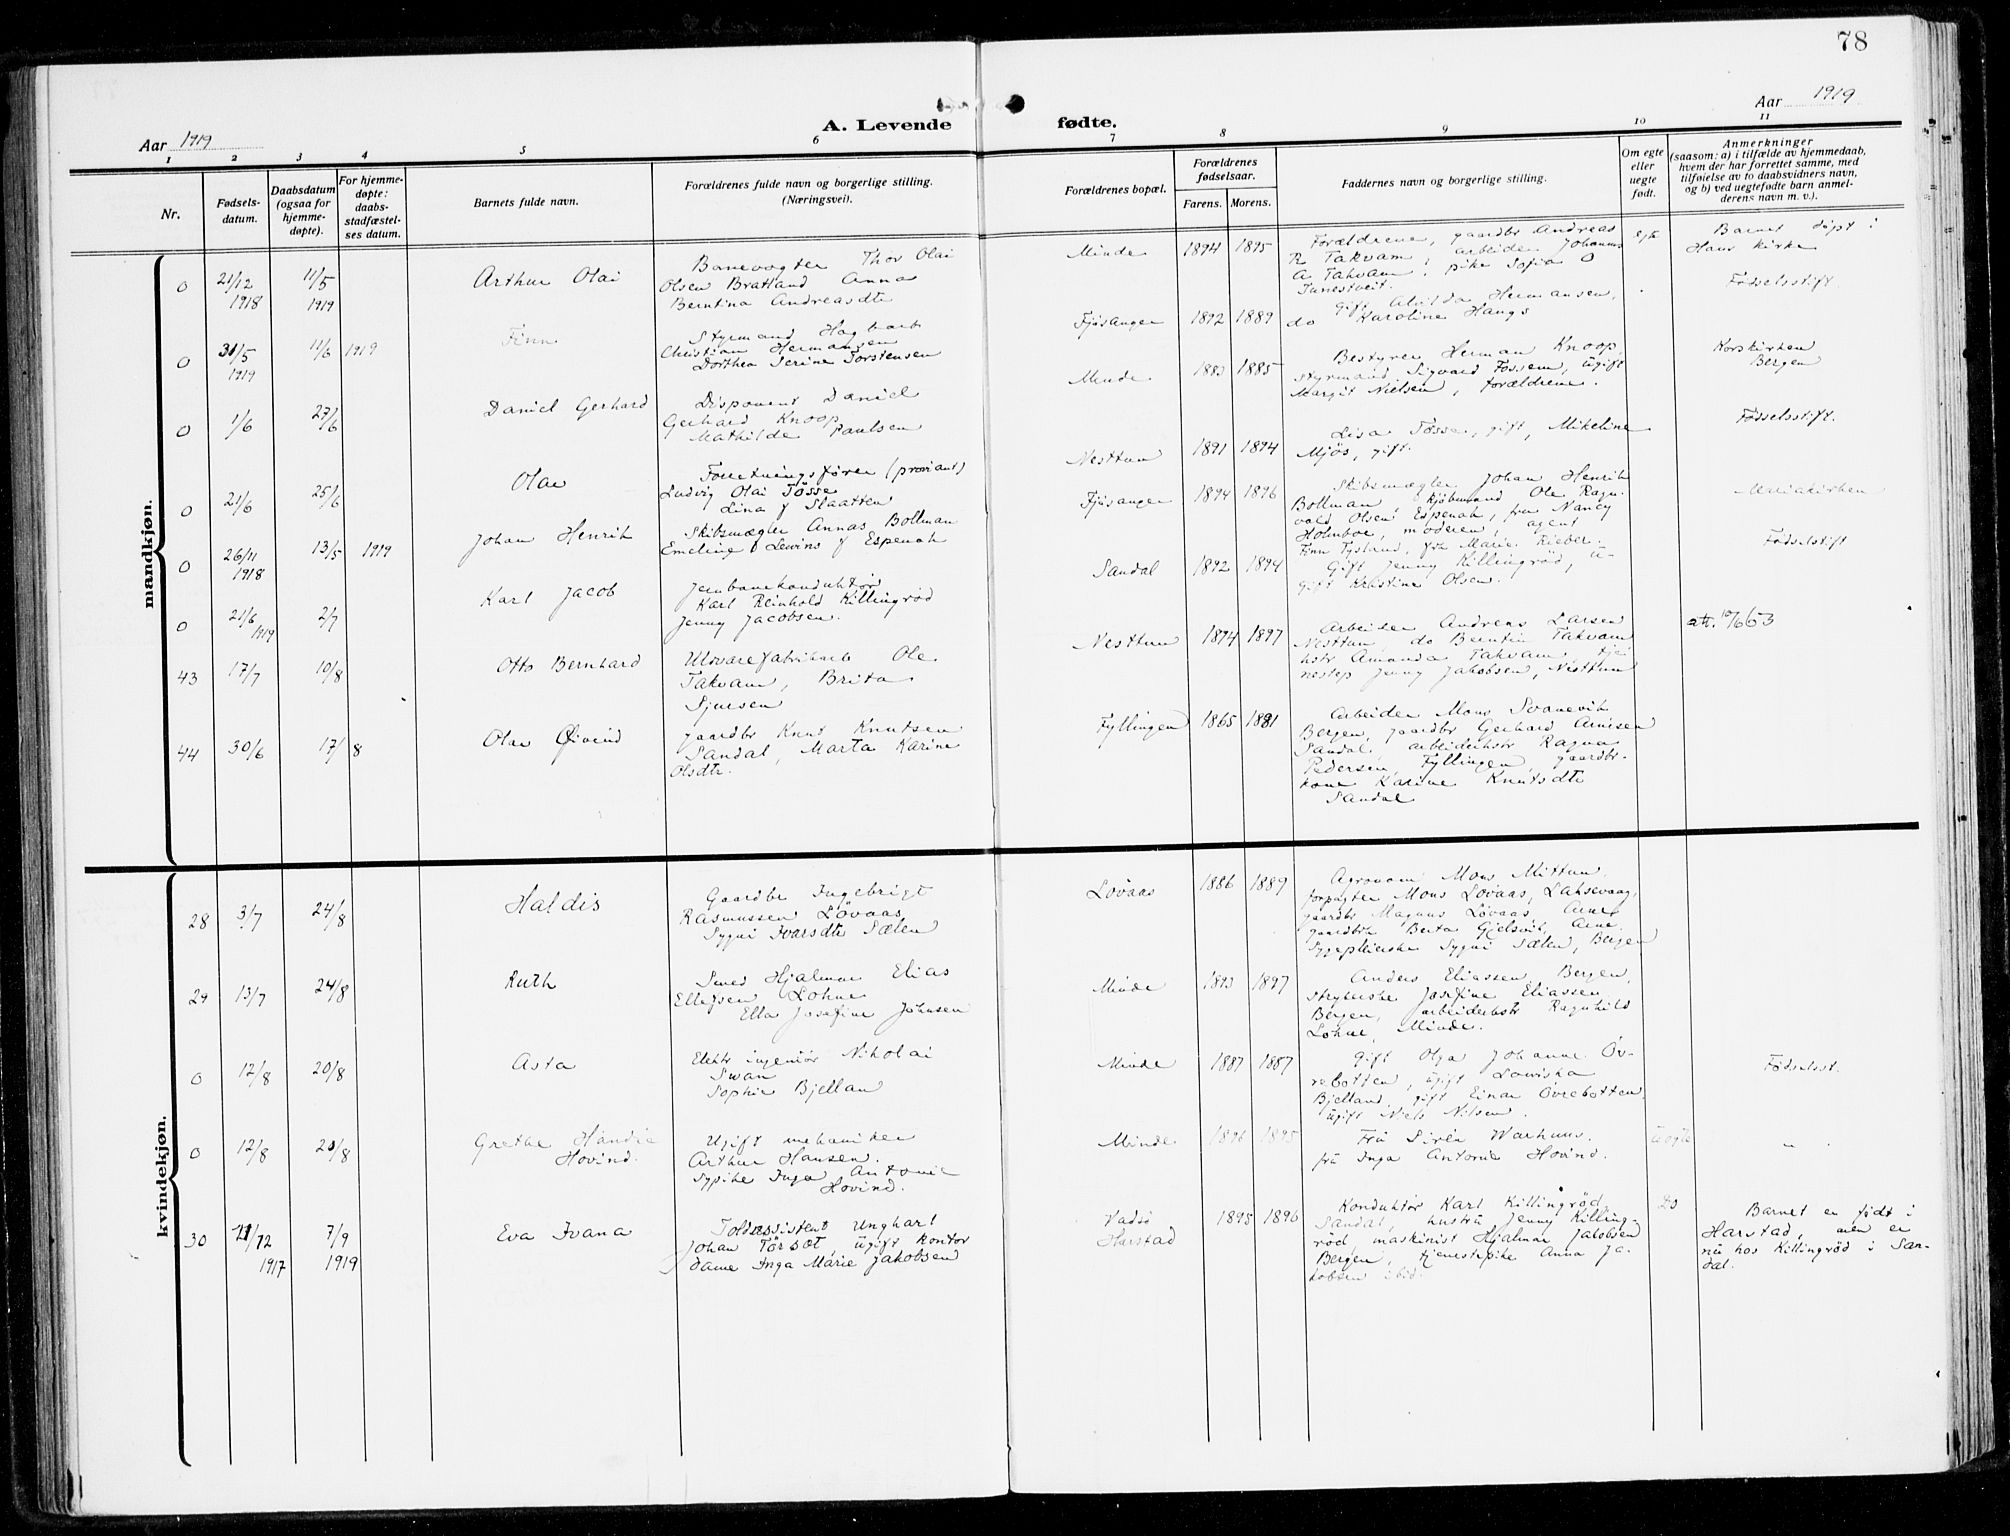 78
Aar 1919
Aar 1919
A. Levende fødte.
1 2 3 4 5 6 7 8 9 10 11
Nr.
Fødsels-
datum.
Daabsdatum
(ogsaa for
hjemme-
døpte).
For hjemme-
døpte:
daabs-
stadfæstel-
ses datum.
Barnets fulde navn.
Forældrenes fulde navn og borgerlige stilling.
(Næringsvei).
Forældrenes bopæl.
Forældrenes
fødselsaar.
Farens. Morens.
Faddernes navn og borgerlige stilling.
Om egte
eller
uegte
født.
Anmerkninger
(saasom: a) i tilfælde av hjemmedaab,
hvem der har forrettet samme, med
tilføielse av to daabsvidners navn,
og b) ved uegtefødte barn anmel-
derens navn m. v.).
mandkjøn.
0 21/12 11/5 Arthur Olai
1918 1919
Banevogter Thor Olai
Olsen Bratland Anna
Berntina Andreasdtr
Minde 1894 1895
Forældrene, gaardbr Andreas
R Takvam, arbeider Johannes
A Takvam, pike Sofia O
Tunestveit.
egte
Barnet døpt i
Haus kirke
0 31/5 11/6 1919 Finn
1919
Styrmand Hagbart
Christian Hermansen
Dorthea Serine Torstensen
Fjøsanger 1892 1889
Gift Alvilda Hermansen,
do Karoline Haugs
Fødselsstift.
0 1/6 27/6 Daniel Gerhard
Disponent Daniel
Gerhard Knoop
Mathilde Paulsen
Minde 1883 1885
Bestyrer Herman Knoop,
styrmand Sigvard Fossem, ugift
Margit Nielsen, forældrene.
Korskirken
Bergen
0 21/6 25/6 Olav
Forretningsfører (proviant)
Ludvig Olai Tøsse
Lina f Slaatten
Nesttun 1891 1894
Lisa Tøsse, gift, Mikeline
Mjøs, gift.
Fødselsstift.
0 26/11 13/5 1919 Johan Henrik
1918
Skibsmægler Annas Bollman
Emeline Lewins f Espenak
Fjøsanger 1894 1896
Skibsmægler Johan Henrik
Bollman, kjøbmand Ole Ragn-
vald Olsen Espenak, fru Nancy
Holmboe, moderen, agent
Finn Tystrand, frk Marie Rieber.
Mariakirken
0 21/6 2/7 Karl Jacob
1919
Jernbanekonduktør
Karl Reinhold Killingrød
Jenny Jacobsen.
Sandal 1892 1894
Gift Jenny Killingrød, u-
gift Kristine Olsen.
Fødselsstift
43 17/7 10/8 Otto Bernhard
Uldvarefabrikarb Ole
Takvam, Brita
Sjursen
Nesttun 1894 1897
Arbeider Andreas Larsen
Nesttun, do Berntin Takvam
hstr Amanda Takvam tje-
nestep Jenny Jakobsen, Nesttun
att. 10/6 63
44 30/6 17/8 Olav Øivind
gaardbr Knut Knutsen
Sandal, Marta Karine
Olsdtr.
Fyllingen 1865 1881
Arbeider Mons Svanevik
Bergen, gaardbr Gerhard Arnesen
Sandal, arbeiderhstr Ragna
Pedersen, Fyllingen, gaardbr-
kone Karine Knutsdtr
Sandal
kvindekjøn.
28 3/7 24/8 Haldis
Gaardbr Ingebrigt
Rasmussen Løvaas,
Sygni Ivarsdtr Sælen
Løvaas 1886 1889
Agronom Mons Mittun,
forpagter Mons Løvaas, Laksevaag,
gaardbr Magnus Løvaas, Arne
gaardbrk Berta Gjelsvik, Arne,
Sygepleierske Sygni Sælen, Bergen
29 13/7 24/8 Ruth
Smed Hjalmar Elias
Ellefsen Lohne
Ella Josefine Johnsen
Minde 1893 1897
Anders Eliassen, Bergen,
strykerske Josefine Eliassen
Bergen, arbeiderhstr Ragnhild
Lohne, Minde.
0 12/8 20/8 Asta
Elektr ingeniør Nikolai
Swan
Sophie Bjelland
Minde 1887 1887
Gift Olga Johanne Øv-
rebotten, ugift Lowiska
Bjelland, gift Einar Øvrebotten,
ugift Niels Nilsen.
Fødselsst.
0 12/8 20/8 Grethe Handie
Hovind.
Ugift mekaniker
Arthur Hansen.
Sypike Inga Antonie
Hovind.
Minde 1896 1895
Fru Siren Warhuus.
fru Inga Antonie Hovind.
uegte
" "
30 21/12 7/9 Eva Ivana
1917 1919
Toldassistent Unghart
Johan Tørsæt ugift kontor
dame Inga Marie Jakobsen
Vadsø 1895 1896
Harstad
Konduktør Karl Killingrød
Sandal, hustru Jenny Killing-
rød, maskinist Hjalmar Jakobsen
Bergen, tjenestepike Anna Ja-
kobsen ibid.
Do
Barnet er født i
Harstad, men er
nu hos Killingrød i San-
dal.